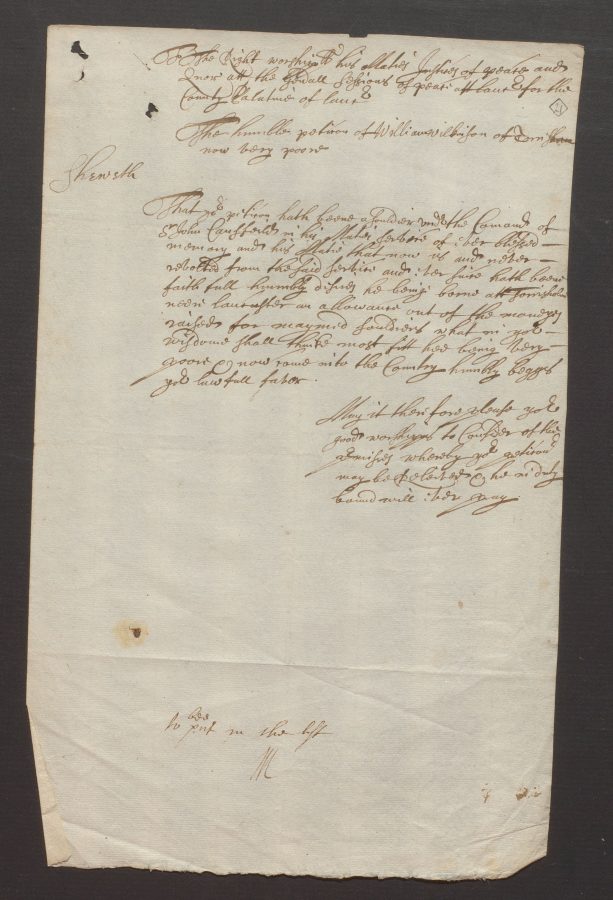 To the Right worshipll his Maties Justices of peace and
Quor att the Genall Sessions of peace att Lanc for the
County Palatine of Lancr
The humble peticon of William Wilkison of Torrisham
now very poore
Sheweth
That yor peticoner hath beene a Souldier under the Comand of
Sr John Cansfeild in his Maties service of ever blessed
memory and his Matie that now is and never
revolted from the said service and ever since hath beene
faithfull humbly desires he being borne att Torrisholm
neere Lancaster an allowance out of the moneyes
raised for maymed souldiers what in yor
wisdome shall thinke most fitt hee being very
poore & now come into the Countrey humbly beggs
yor lawfull favor
May it therefore please yor
good worships to Consider of the
premises whereby yor peticoner
may be Releeved & he in duty
bound will ever pray
to bee put in the list
M